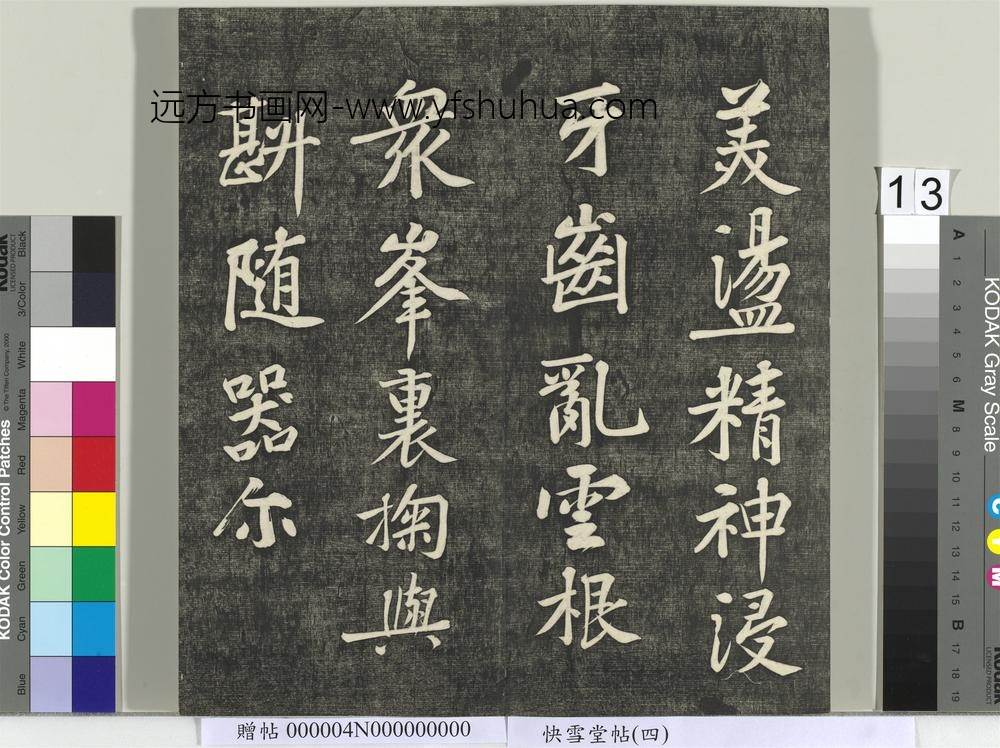 美盪精神浸
牙齒亂雲根
衆峯裏掬與
斟随器尔
远方书画网-www.yfshuhua.com
13
贈帖 000004N000000000
快雪堂帖(四)
Kodak
LICENSED PRODUCT
Black
3/Color
White
Magenta
Red
Yellow
Green
Cyan
Blue
KODAK Color Control Patches
© The Tiffen Company, 2000
KODAK Gray Scale
A 1 2 3 4 5 6 M 8 9 10 11 12 13 14 15 B 17 18 19
C
Y
M
Kodak
LICENSED PRODUCT